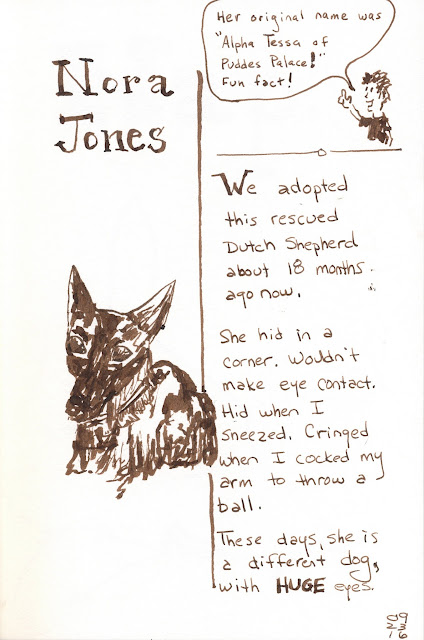 Her original name was
"Alpha Tessa of
Puddes Palace!"
Fun fact!
Nora
Jones
We adopted
this rescued
Dutch Shepherd
about 18 months
ago now.
She hid in a
corner. Wouldn't
make eye contact.
Hid when I
sneezed. Cringed
when I cocked my
arm to throw a
ball.
These days, she is
a different dog,
with HUGE eyes.
09
23
16